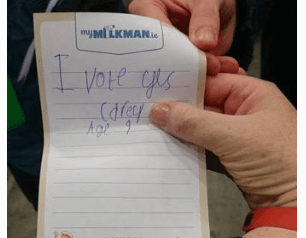 myMILKMAN.ie
I vote yes
Grey
Age 9